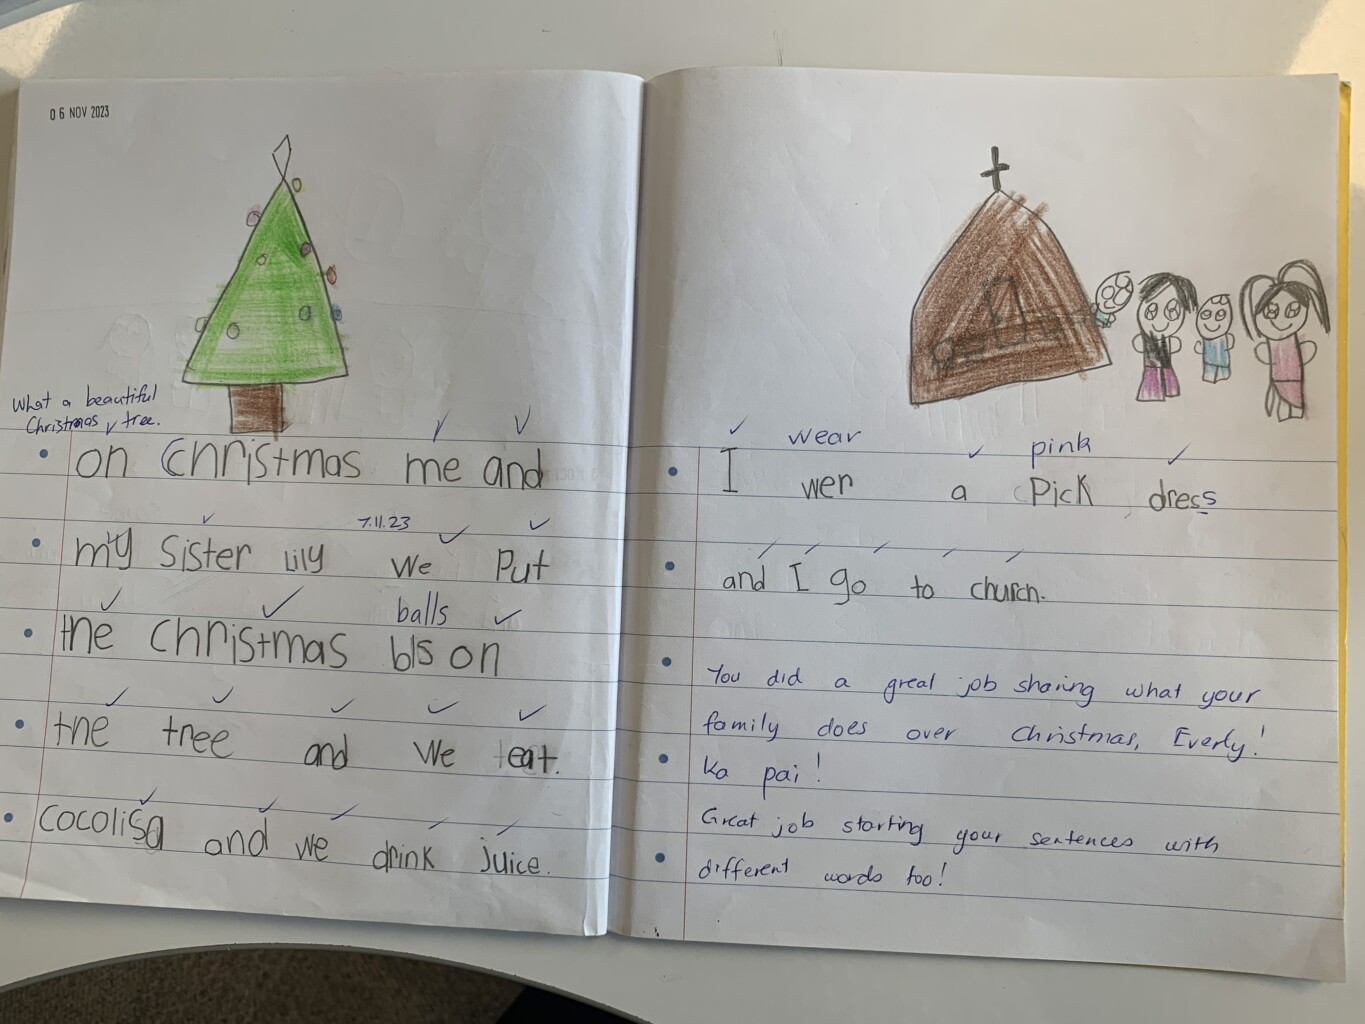 06 NOV 2023
What a beautiful
Christmas tree.
on Christmas me and
my Sister Lily we Put
7.11.23
the Christmas bls on
balls
the tree and We eat.
cocolisa and we drink juice.
I wer a Pick dress
wear pink
and I go to church.
You did a great job sharing what your
family does over Christmas, Everly!
Ka pai!
Great job starting your sentences with
different words too!